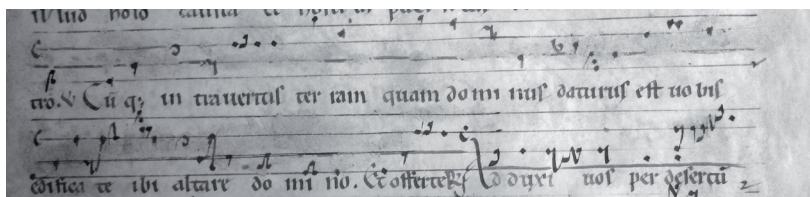 tro. V Cū q; in traueritis ter ram quam do mi nus daturus est uo bis
edifica te ibi altare do mi no. Et offerte R duxi uos per desertū